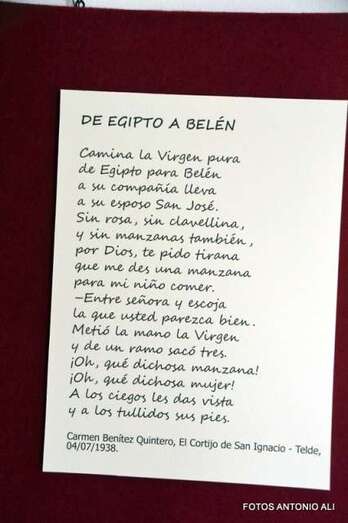 DE EGIPTO A BELÉN
Camina la Virgen pura
de Egipto para Belén
a su compañía lleva
a su esposo San José.
Sin rosa, sin clavellina,
y sin manzanas también,
por Dios, te pido tirana
que me des una manzana
para mi niño comer.
–Entre señora y escoja
la que usted parezca bien.
Metió la mano la Virgen
y de un ramo sacó tres.
¡Oh, qué dichosa manzana!
¡Oh, qué dichosa mujer!
A los ciegos les das vista
y a los tullidos sus pies.
Carmen Benítez Quintero, El Cortijo de San Ignacio - Telde,
04/07/1938.
FOTOS ANTONIO ALI